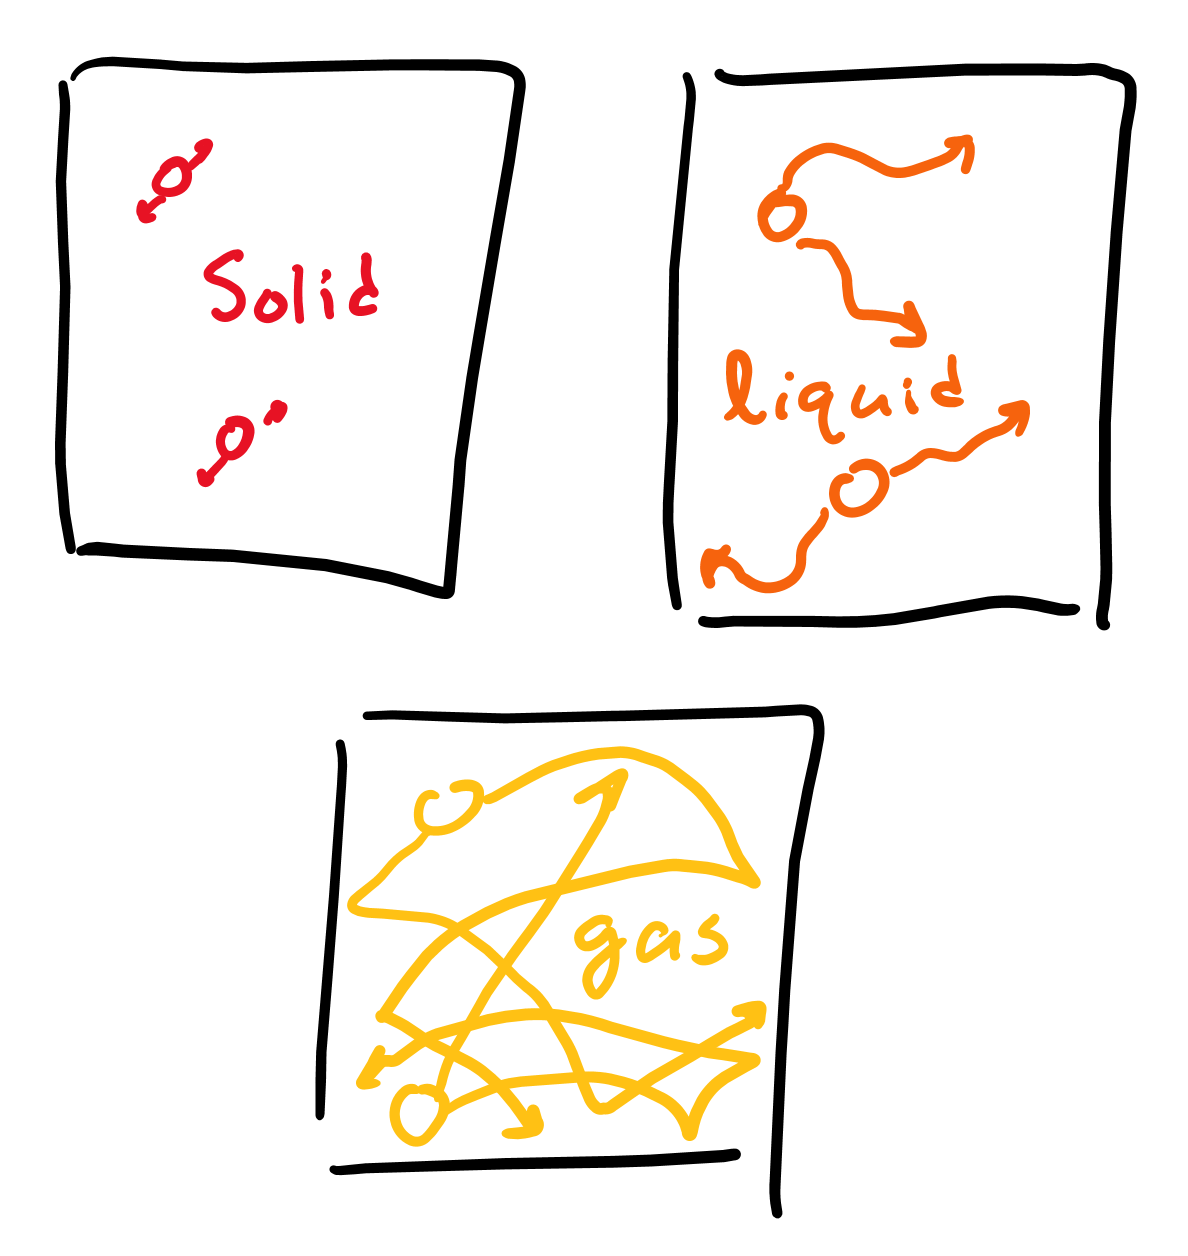 Solid
liquid
gas